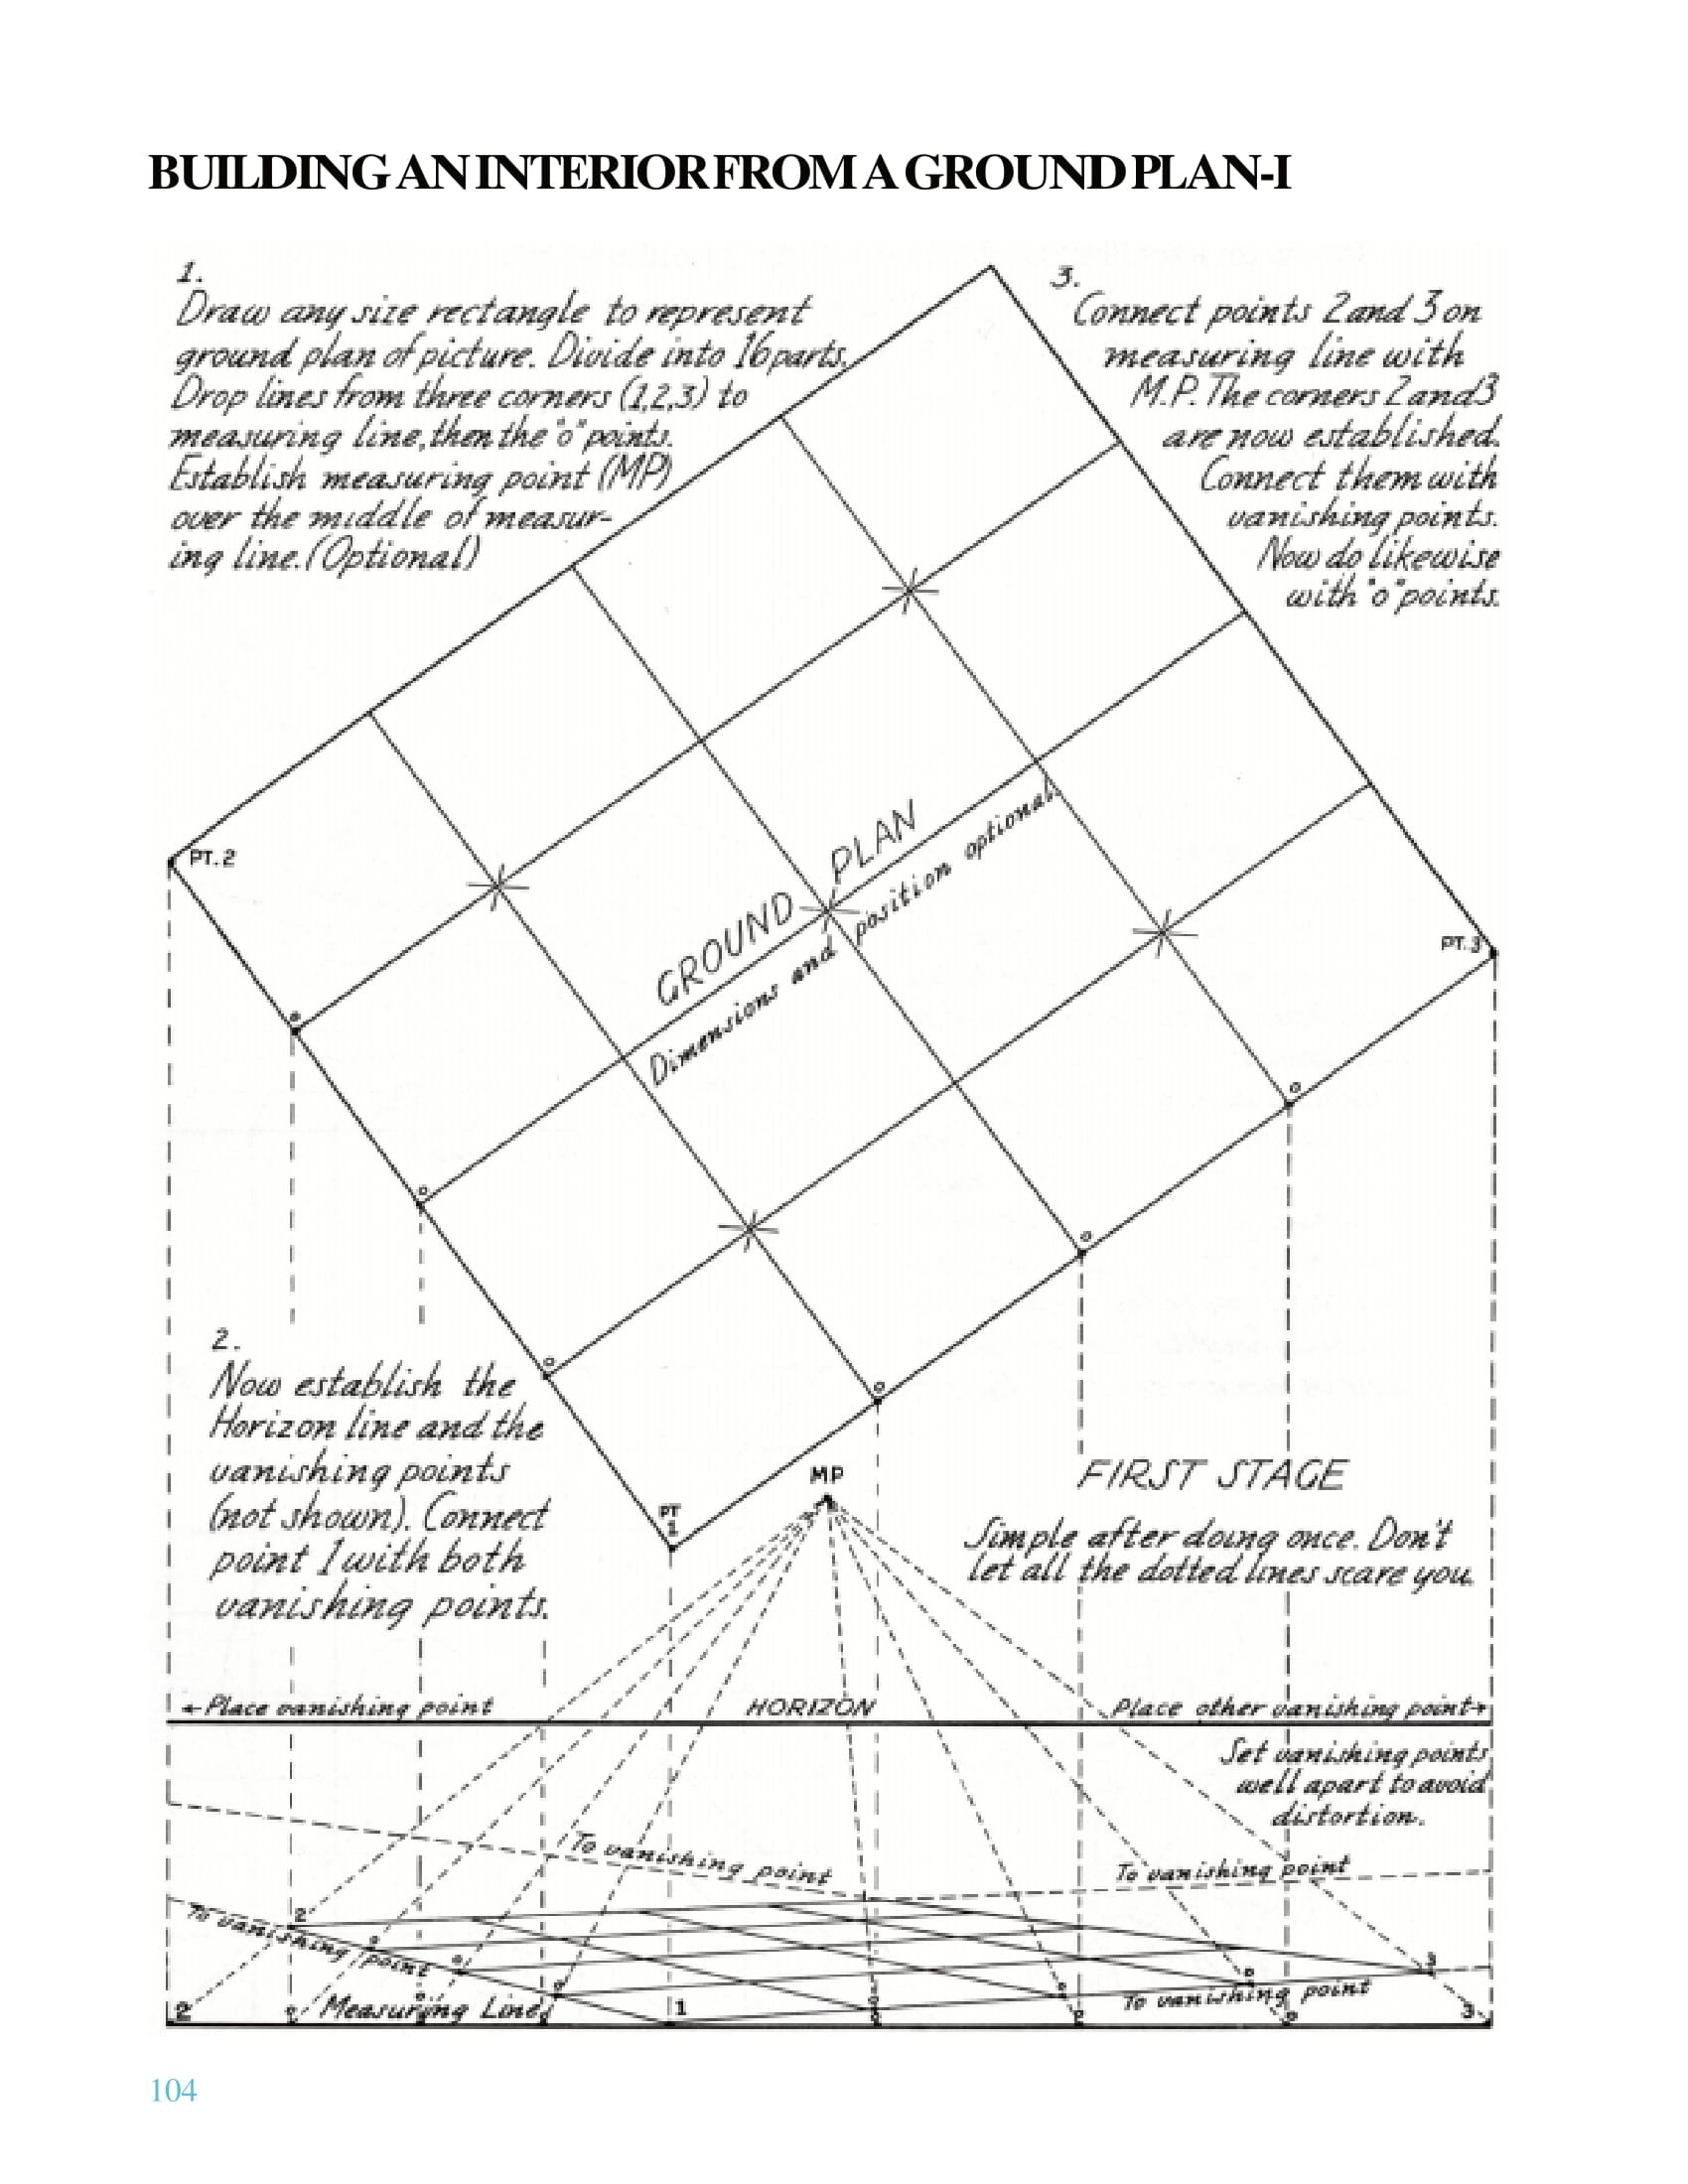 BUILDING AN INTERIOR FROM A GROUND PLAN-I
1.
Draw any size rectangle to represent
ground plan of picture. Divide into 16 parts.
Drop lines from three corners (1,2,3) to
measuring line, then the "o" points.
Establish measuring point (MP)
over the middle of measur-
ing line. (Optional)
3.
Connect points 2 and 3 on
measuring line with
M.P. The corners 2 and 3
are now established.
Connect them with
vanishing points.
Now do likewise
with "o" points.
PT. 2
GROUND PLAN
Dimensions and position optional.
PT. 3
o
o
o
o
o
o
2.
Now establish the
Horizon line and the
vanishing points
(not shown). Connect
point 1 with both
vanishing points.
PT
1
MP
FIRST STAGE
Simple after doing once. Don't
let all the dotted lines scare you.
←Place vanishing point
HORIZON
Place other vanishing point→
Set vanishing points
well apart to avoid
distortion.
To vanishing point
To vanishing point
To vanishing point
To vanishing point
2
o
o
o
o
o
o
3
2
o
o
Measuring Line
1
o
o
o
3
104